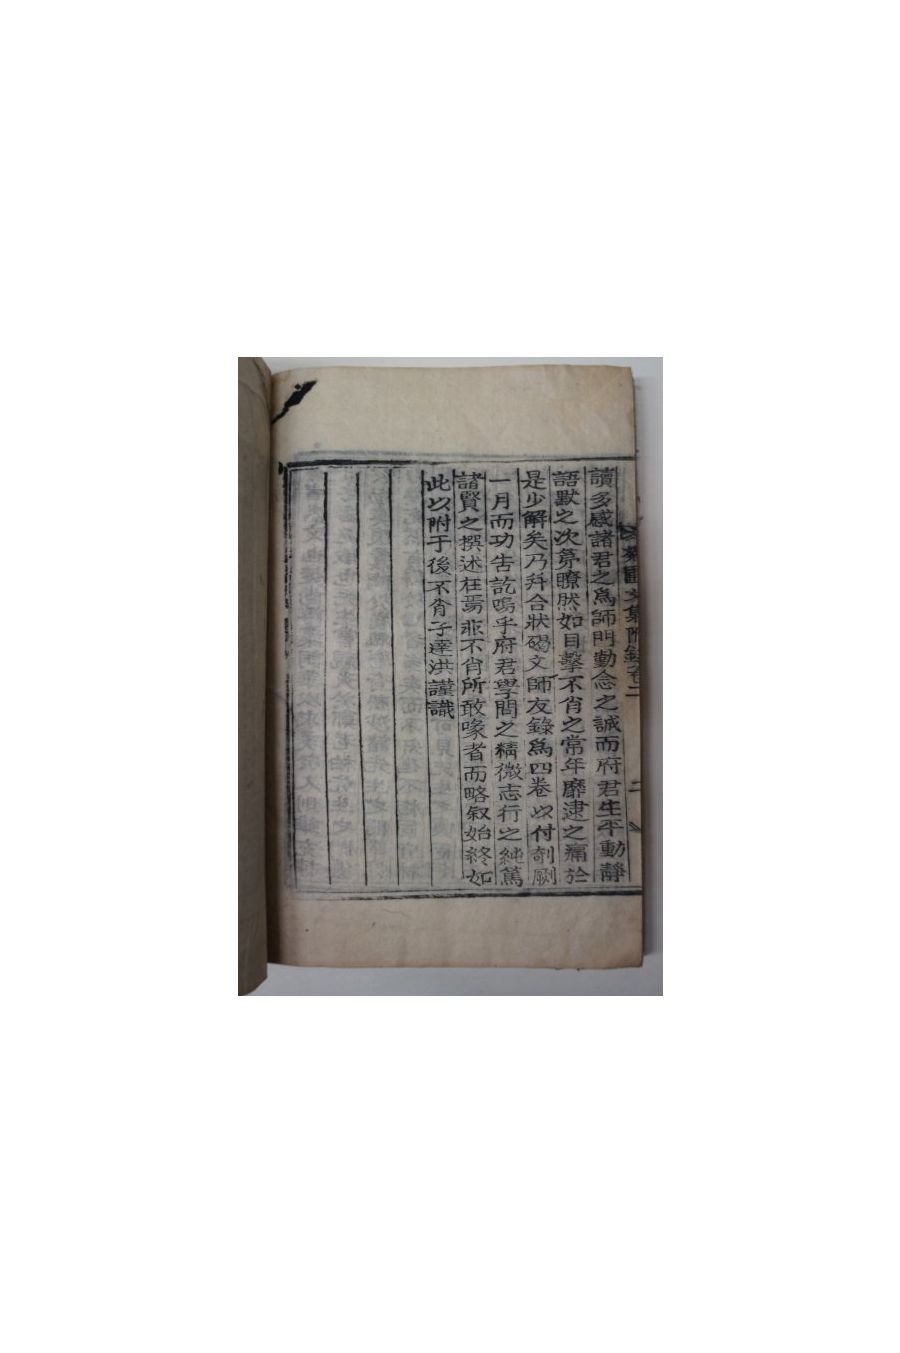 讀多感諸君之爲師門動念之誠而府君生平動靜
語默之次第瞭然如目擊不肖之常年靡逮之痛於
是少解矣乃幷合狀碣文師友錄爲四卷以付剞劂
一月而功告訖嗚乎府君學問之精微志行之純篤
諸賢之撰述在焉非不肖所敢喙者而略叙始終如
此以附于後不肖子達洪謹識
文集附錄卷二
二